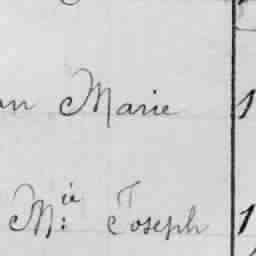 an Marie 1
Mie: Joseph 1